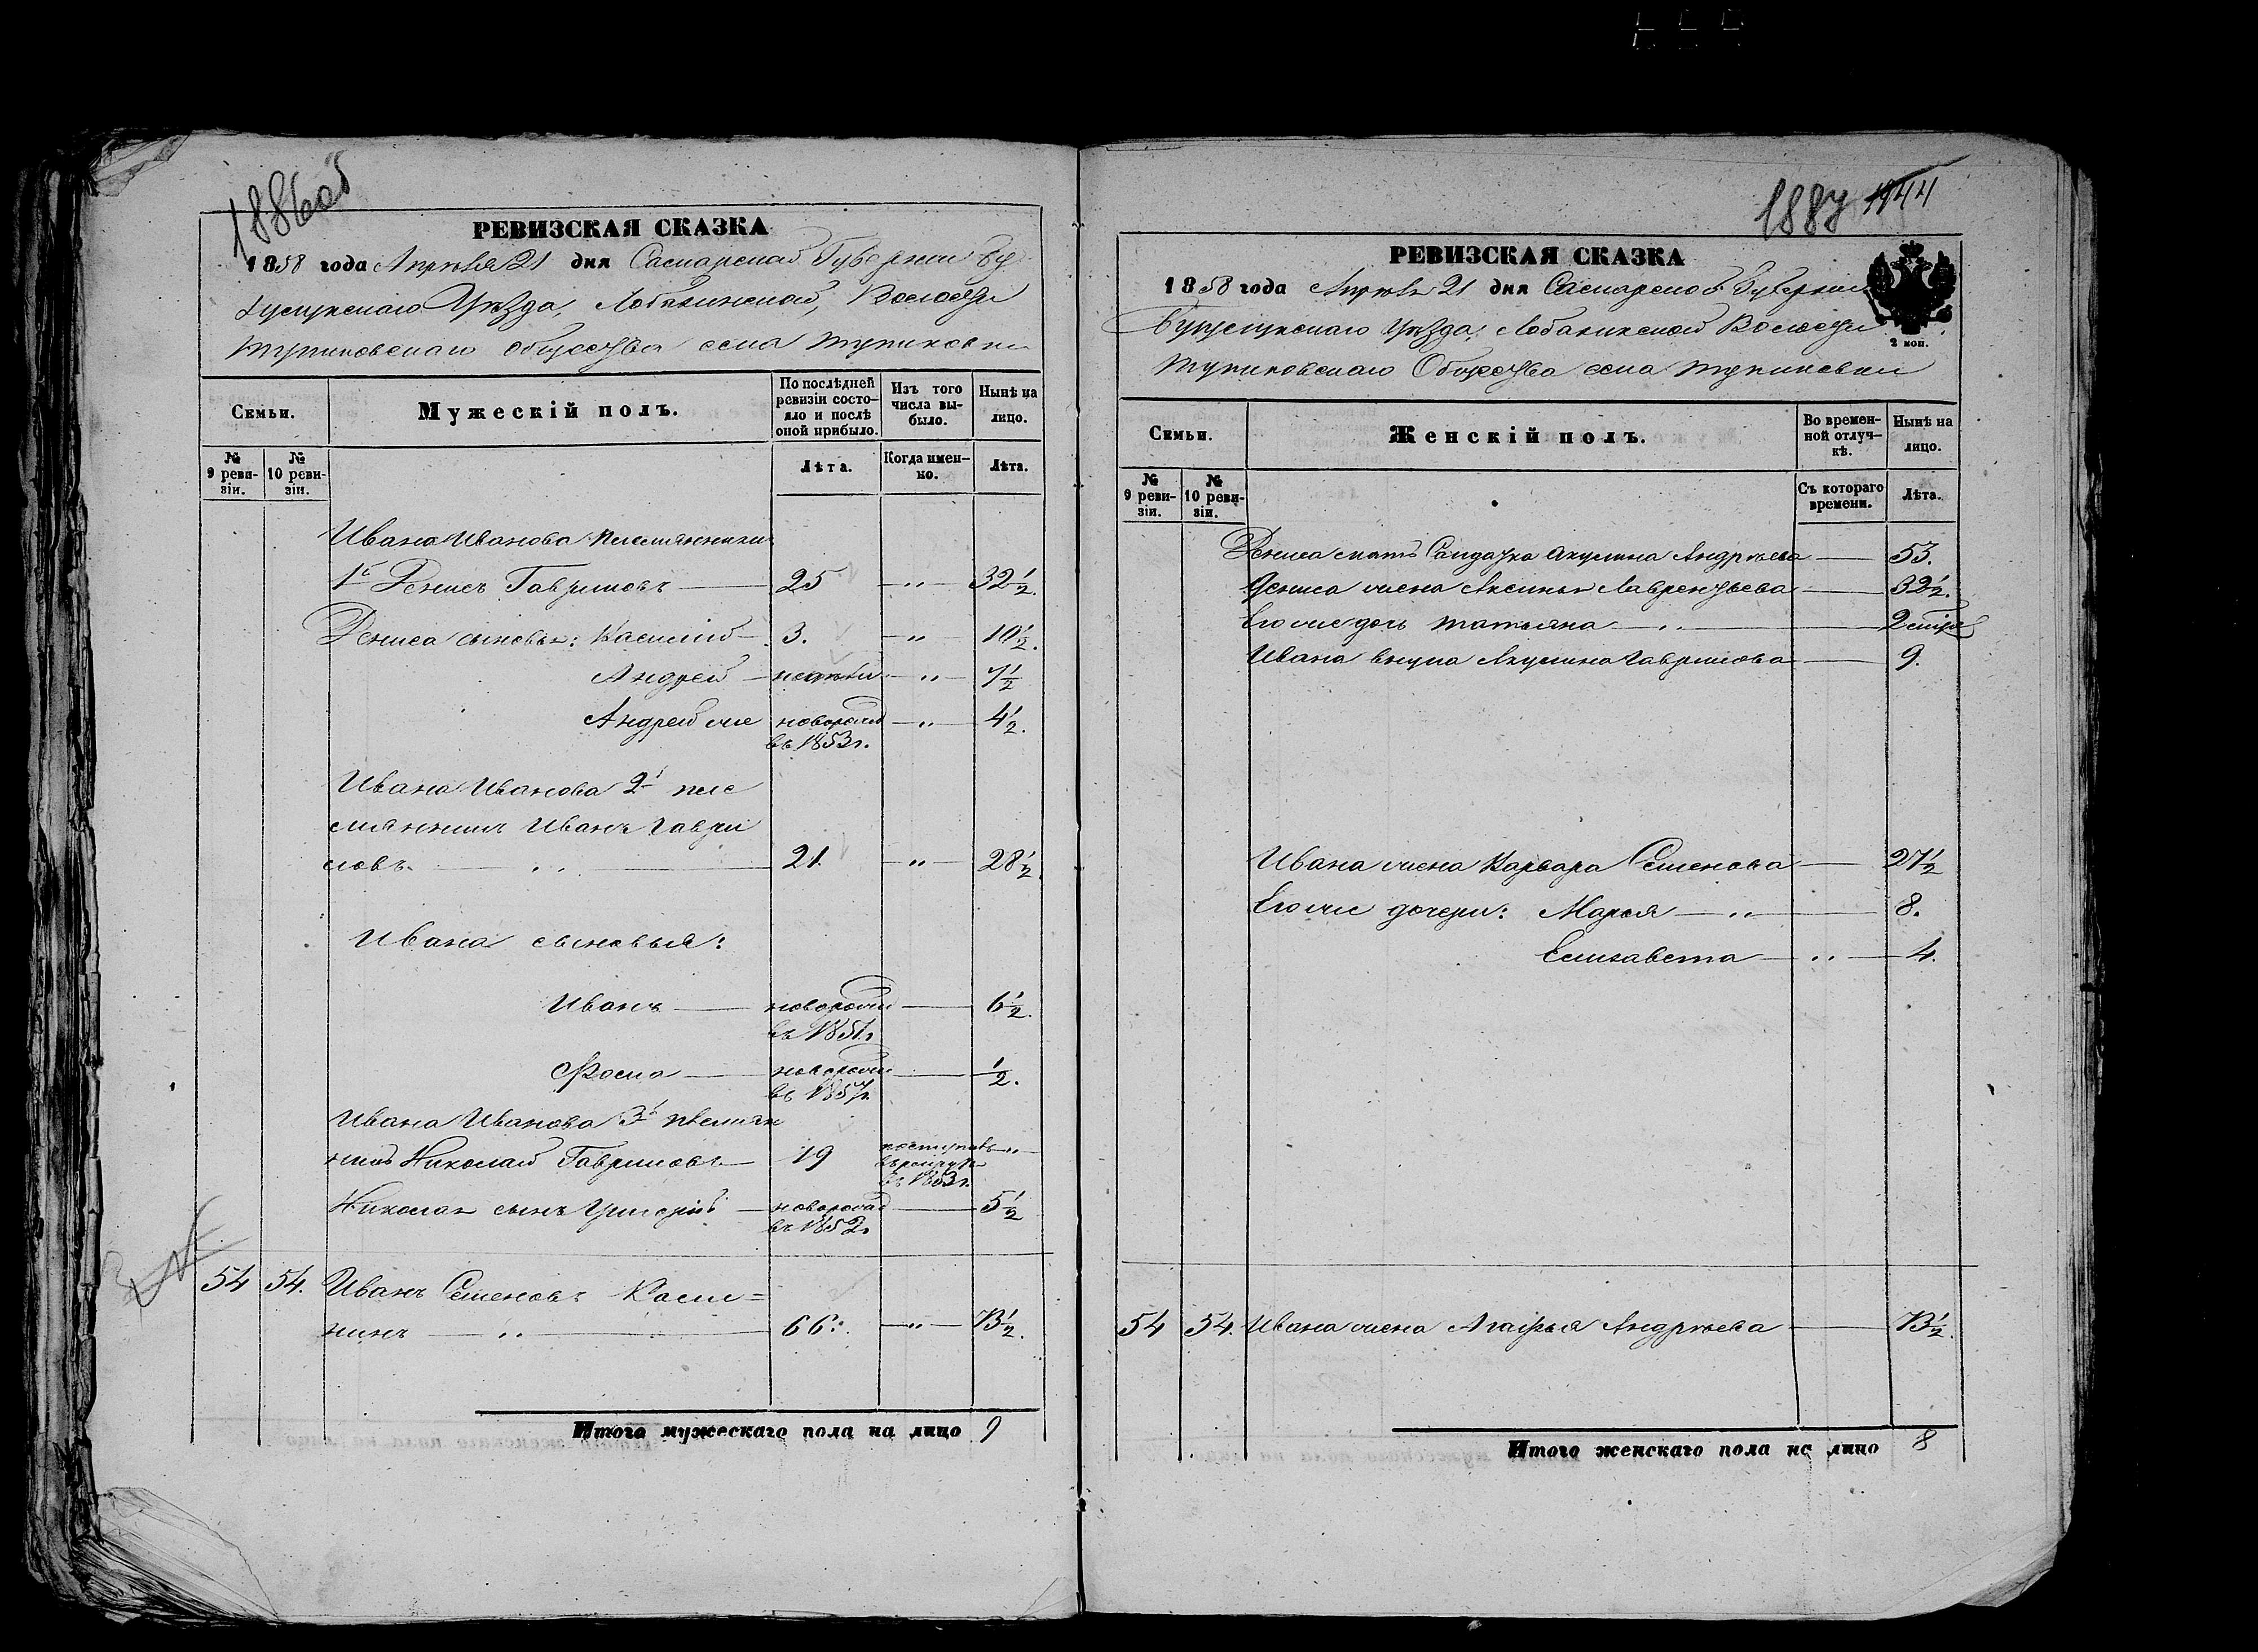 1886об
РЕВИЗСКАЯ СКАЗКА
1858 года Апрѣля 21 дня Самарской Губернии Бу
гусунскаго Уѣзда, Лобакинской, Волости
Тупиковскаго общества села Тупиковки
Семьи.
Мужескій полъ.
По послѣдней ревизіи состояло и послѣ оной прибыло.
Изъ того числа выбыло.
Нынѣ на лицо.
№ 9 ревизіи.
№ 10 ревизіи.
Лѣта.
Когда именно.
Лѣта.
Ивана Иванова племянники
1й Денисъ Гавриловъ — 25 — " — 32½.
Дениса сыновья: Василий — 3. — " — 10½.
Андрей — " — 7½
Андрей же новорожд — " — 4½.
въ 1853г.
Ивана Иванова 2й пле
мянникъ Иванъ Гаври
ловъ. — 21. — " — 28½
Ивана сыновья:
Иванъ — новорожд — 6½.
въ 1851г.
Фома — новорожд — ½.
въ 1857г.
Ивана Иванова 3й племян
никъ Николай Гавриловъ — 19 поступ. — " —
въ рекруты
въ 1853г.
Николая сынъ Григорий — новорожд — 5½
въ 1852г.
54 54. Иванъ Семеновъ
нинъ — " — 66. — " — 73½.
Итого мужескаго пола на лицо 9
1887 1944
РЕВИЗСКАЯ СКАЗКА
1858 года Апрѣля 21 дня Самарской Губернии
Бугусунскаго Уѣзда, Лобакинской Волости
2 коп.
Тупиковскаго Общества села Тупиковки
Семьи.
Женскій полъ.
Во временной отлучкѣ.
Нынѣ на лицо.
№ 9 ревизіи.
№ 10 ревизіи.
Съ котораго времени.
Лѣта.
Дениса мать Солдатка Акулина Андрѣева — 53.
Дениса жена Аксинья Лаврентьева — 32½.
Его же дочь Татьяна — " —
Ивана внука Акулина Гаврилова — 9.
Ивана жена Варвара Семенова — 27½
Его же дочери: Марья — " — 8.
Елизавета — " — 4.
54 54. Ивана жена Агафья Андрѣева — 73½.
Итого женскаго пола на лицо 8